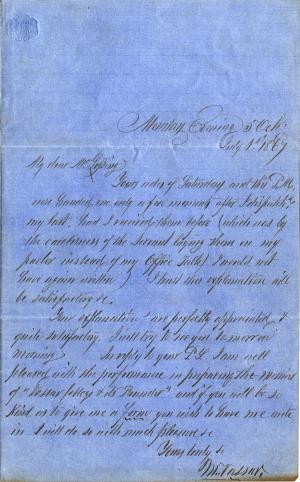 Monday Evening 5 Oclk.
July 1st 1867
My dear Mr Lossing
Your notes of Saturday and this P.M.
were handed me only a few moments after I dispatched
my last. Had I received them before (which was by
the carelessness of the Servant laying them in my
parlor instead of my Office Table I would not
have again written) I trust this explanation will
be satisfactory &c.
Your explanations are perfectly appreciated &
quite satisfactory. I will try to see you tomorrow
morning. In reply to your P.S. I am well
pleased with the performance in preparing the Memoir
of "Vassar College & its Founder" and if you will be so
kind as to give me a form you wish to have me write
in I will do so with much pleasure &c
Yours truly &c
M. Vassar.